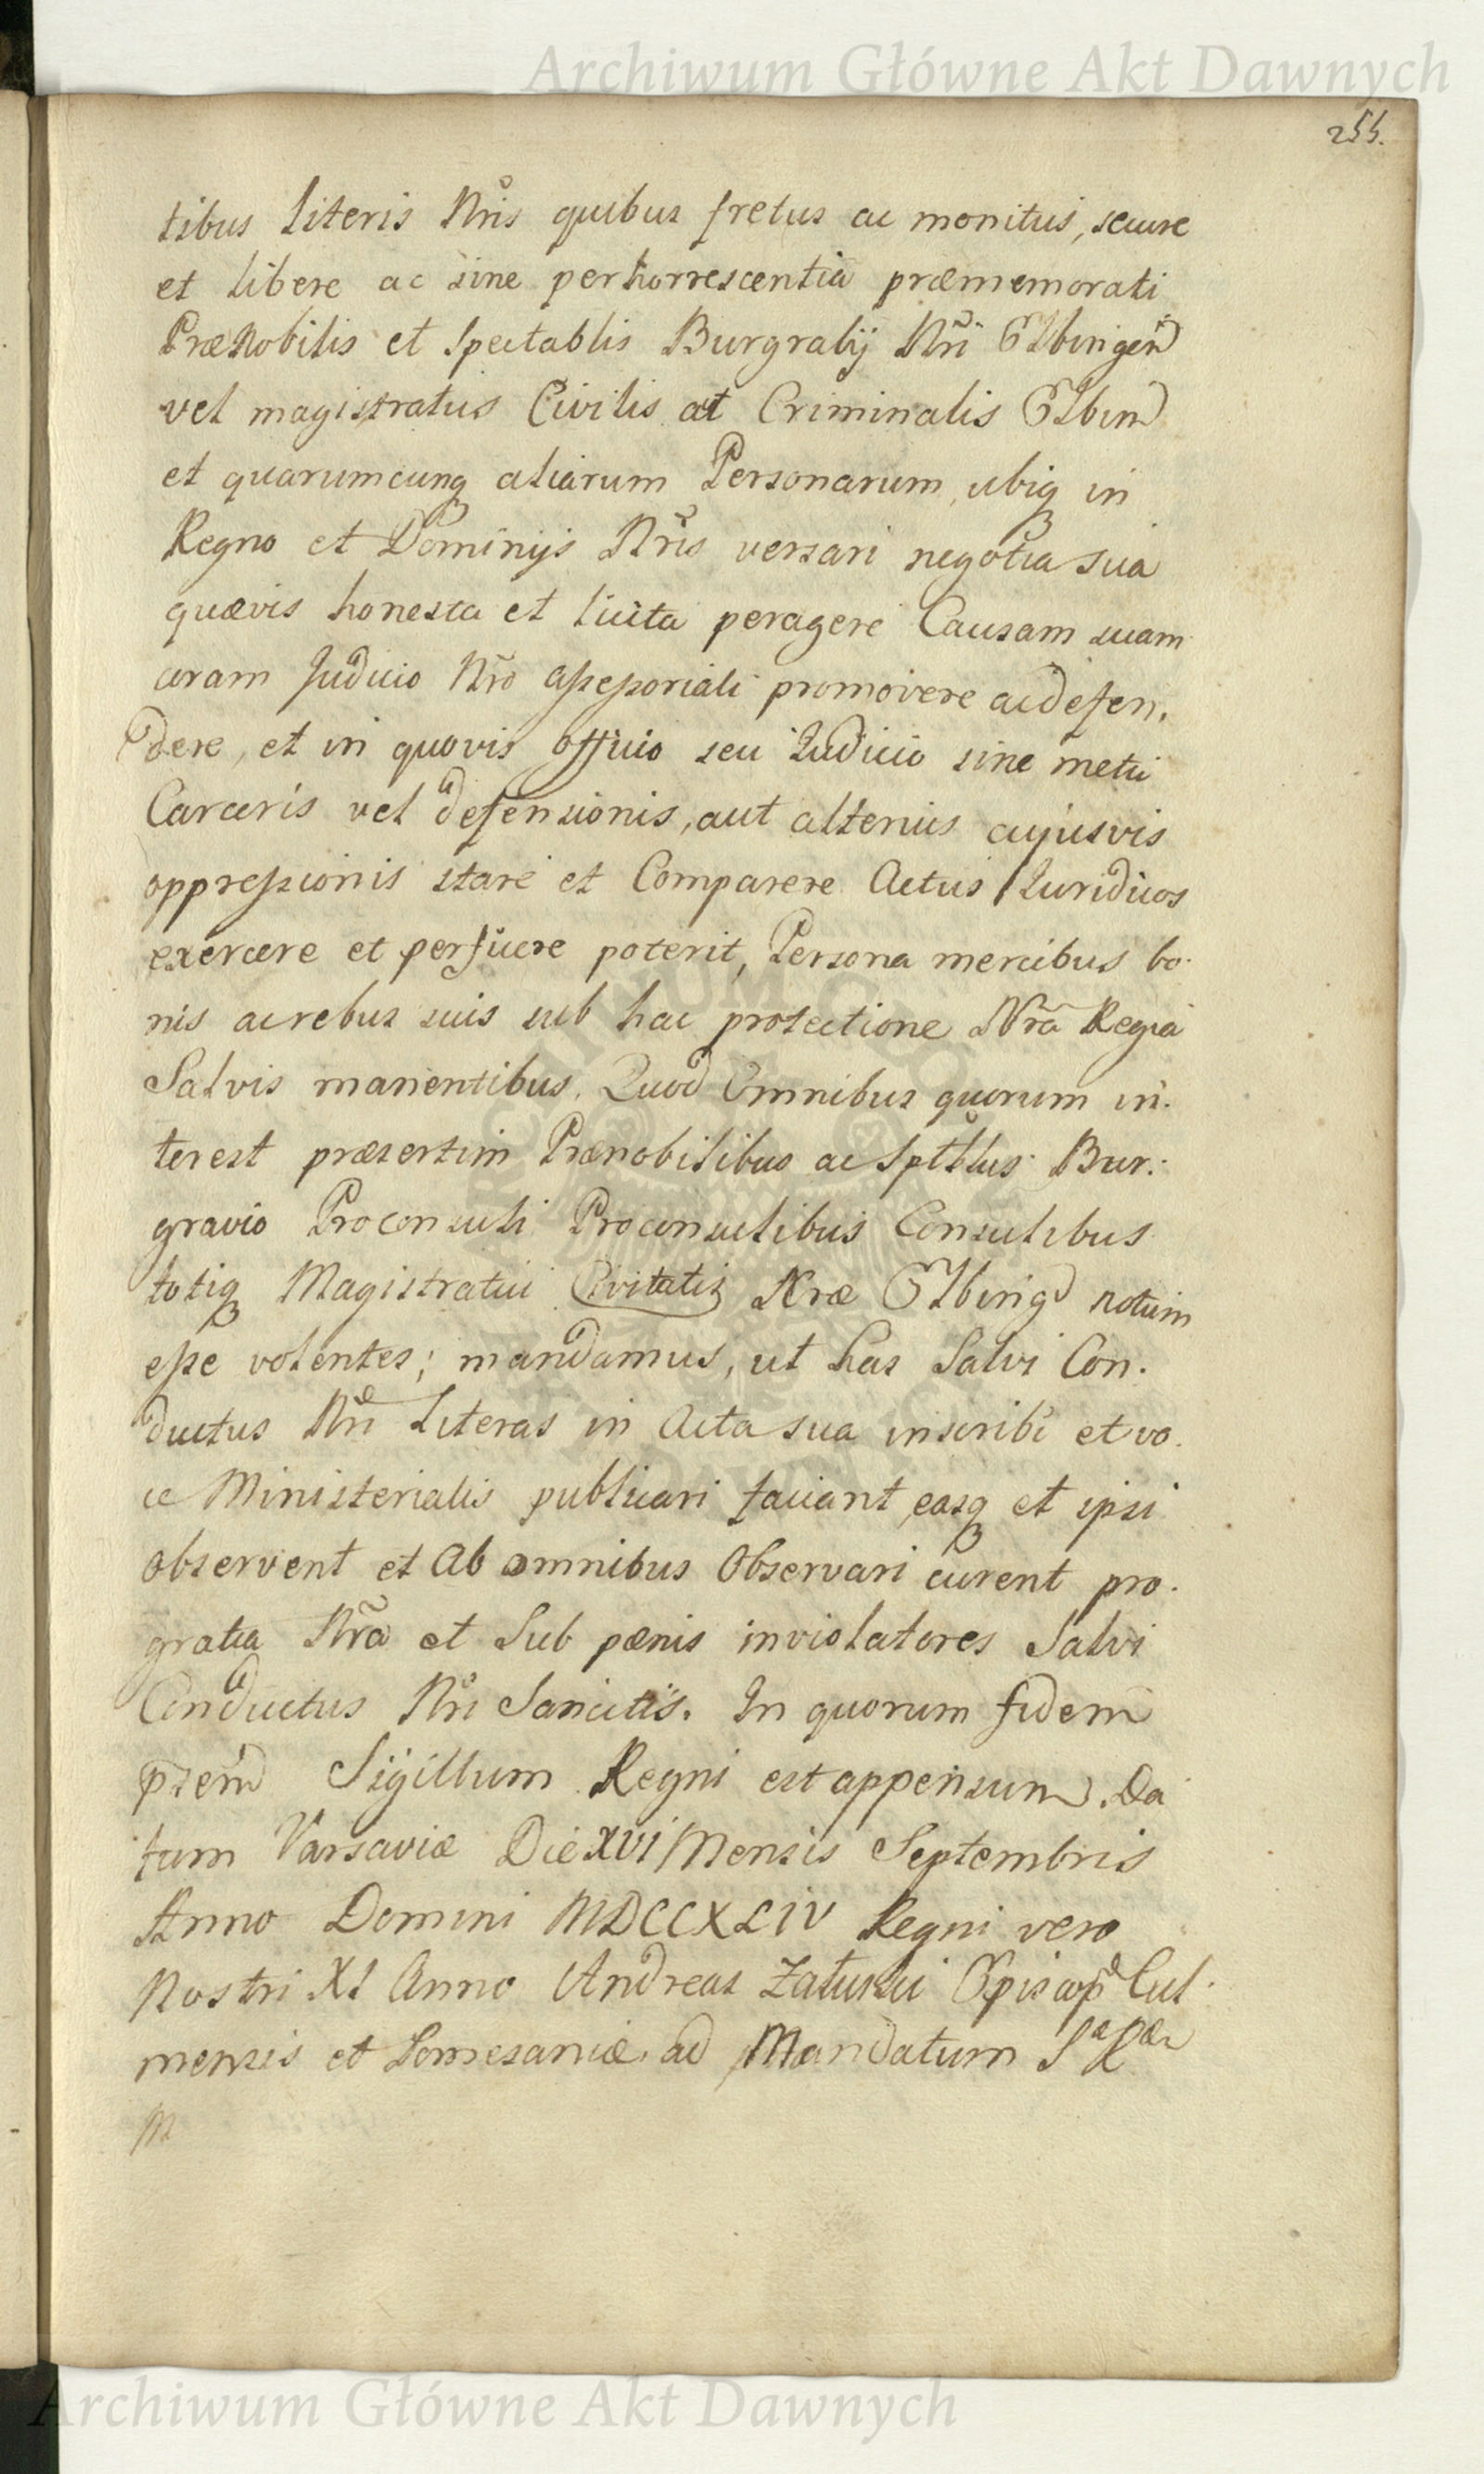 Archiwum Główne Akt Dawnych
255.
tibus Literis Nris quibus fretus ac monitus, secure
et libere ac sine perhorrescentia præmemorati
PræNobilis et Spectablis Burgrabij Nri Elbingen
vel magistratus Civilis at Criminalis Elbin
et quarumcunq aliarum Personarum, ubiq in
Regno et Dominijs Nris versari negotia sua
quævis honesta et licita peragere Causam suam
coram Judicio Nro Assessoriali promovere ac defen,
dere, et in quovis officio seu Judicio sine metu
Carceris vel defensionis, aut alterius cujusvis
oppressionis stare et Comparere Actus Juridicos
exercere et perficere poterit, Persona mercibus bo.
nis ac rebus suis sub hac protectione Nra Regia
Salvis manentibus. Quod Omnibus quorum in.
terest præsertim Prænobilibus ac Sptblus Bur.
gravio Proconsuli Proconsulibus Consulibus
totiq Magistratui Civitatis Nræ Elbing notum
esse volentes; mandamus, ut has Salvi Con.
ductus Nri Literas in Acta sua inscribi et vo.
ce Ministerialis publicari faciant, easq et ipsi
observent et Ab omnibus Observari curent pro.
gratia Nra et Sub pœnis inviolatores Salvi
Conductus Nri Sancitis. In quorum fidem
præsen Sigillum Regni est appensum. Da
tum Varsaviæ Die XVI Mensis Septembris
Anno Domini MDCCXLIV Regni vero
Nostri XI Anno Andreas Załuski Episcop Cul.
mensis et Pomesaniæ. ad Mandatum S R
M
Archiwum Główne Akt Dawnych